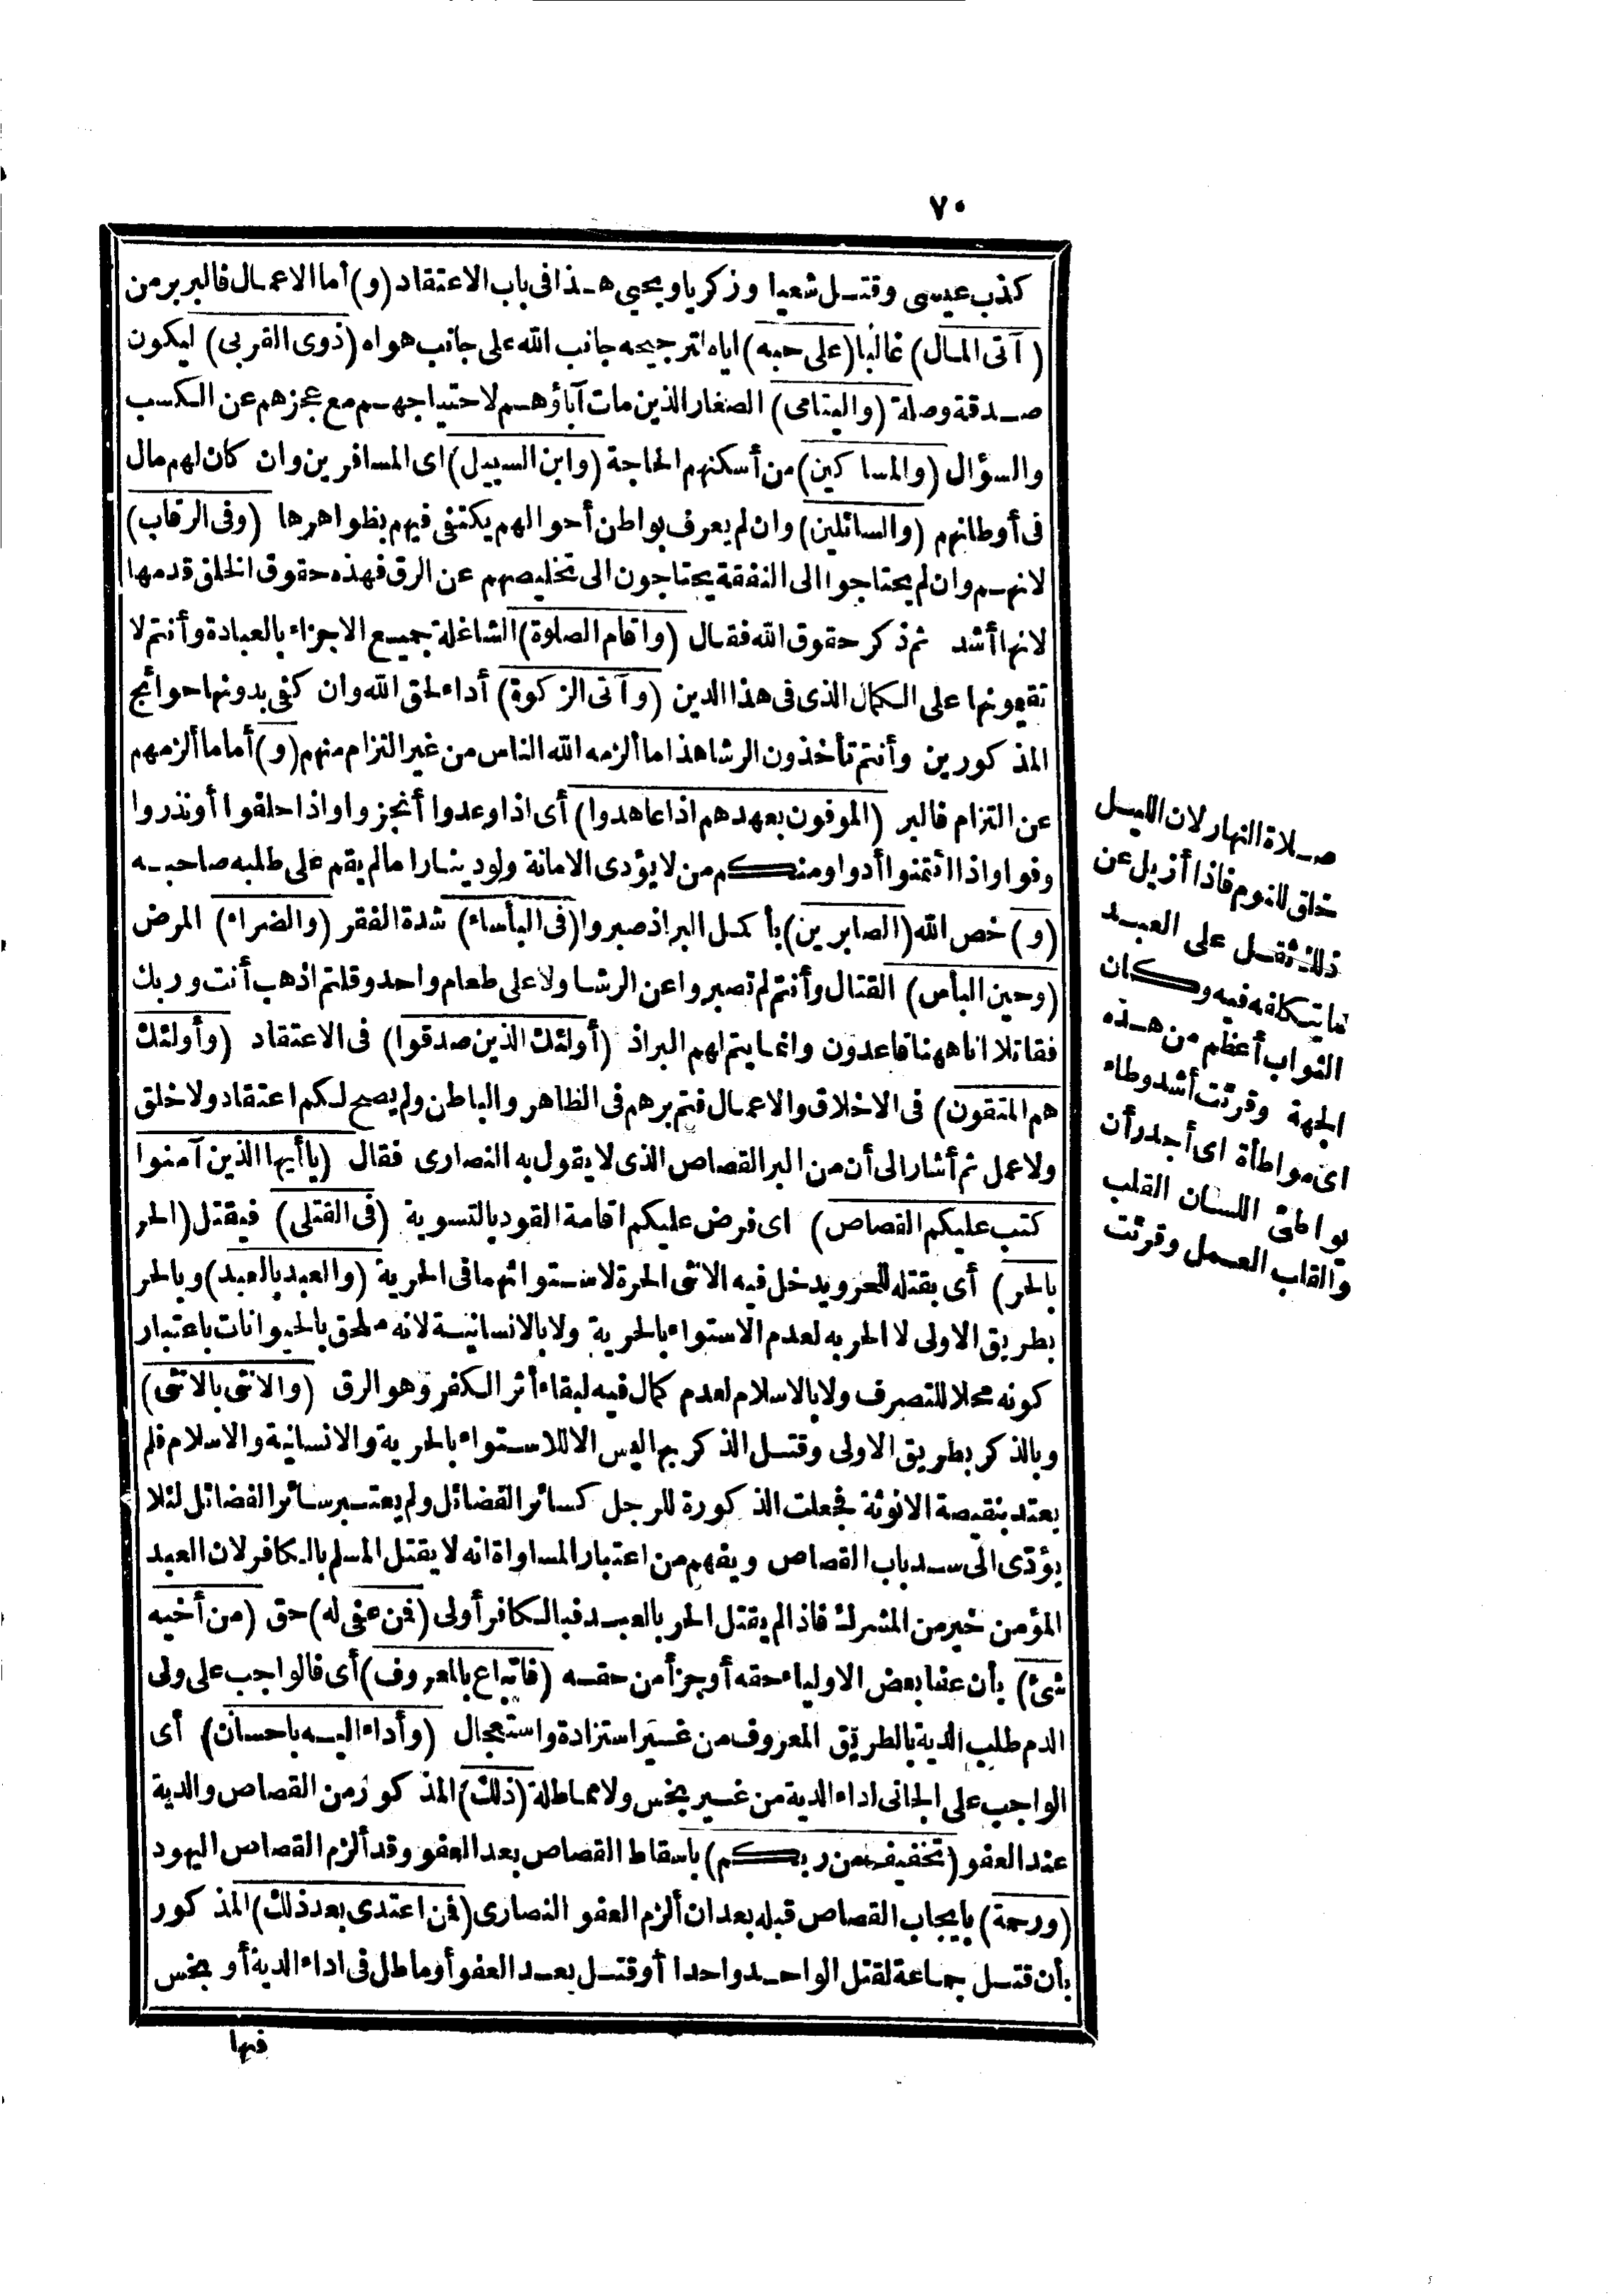 ٧٠
كذب عيسى وقتل شعيا وزكريا ويحيى هذا فى باب الاعتقاد (و) أما الاعمال فالبر بر من
(آتى المال) غالبا (على حبه) اياه لترجيحه جانب الله على جانب هواه (ذوى القربى) ليكون
صدقة وصلة (واليتامى) الصغار الذين مات آباؤهم لاحتياجهم مع عجزهم عن الكسب
والسؤال (والمساكين) من أسكنهم الحاجة (وابن السبيل) اى المسافرين وان كان لهم مال
فى أوطانهم (والسائلين) وان لم يعرف بواطن أحوالهم يكتفى فيهم بظواهرها (وفى الرقاب)
لانهم وان لم يحتاجوا الى النفقة يحتاجون الى تخليصهم عن الرق فهذه حقوق الخلق قدمها
لانها أشد ثم ذكر حقوق الله فقال (واقام الصلوة) الشاغلة جميع الاجزاء بالعبادة وأنتم لا
تقيمونها على الكمال الذى فى هذا الدين (وآتى الزكوة) أداء لحق الله وان كفى بدونها حوائج
المذكورين وأنتم تأخذون الرشا هذا ما ألزمه الله الناس من غير التزام منهم (و) أما ما ألزمهم
عن التزام فالبر (الموفون بعهدهم اذا عاهدوا) أى اذا وعدوا أنجزوا واذا حلفوا أو نذروا
وفوا واذا ائتمنوا أدوا ومنكم من لا يؤدى الامانة ولو دينارا ما لم يقم على طلبه صاحبه
(و) خص الله (الصابرين) بأكمل البر اذ صبروا (فى البأساء) شدة الفقر (والضراء) المرض
(وحين البأس) القتال وأنتم لم تصبروا عن الرشا ولا على طعام واحد وقلتم اذهب أنت وربك
فقاتلا انا ههنا قاعدون وانما يتم لهم البر اذ (أولئك الذين صدقوا) فى الاعتقاد (وأولئك
هم المتقون) فى الاخلاق والاعمال فتم برهم فى الظاهر والباطن ولم يصح لكم اعتقاد ولا خلق
ولا عمل ثم أشار الى أن من البر القصاص الذى لا يقول به النصارى فقال (يا أيها الذين آمنوا
كتب عليكم القصاص) اى فرض عليكم اقامة القود بالتسوية (فى القتلى) فيقتل (الحر
بالحر) أى بقتله للحر ويدخل فيه الانثى الحرة لاستوائهما فى الحرية (والعبد بالعبد) وبالحر
بطريق الاولى لا الحر به لعدم الاستواء بالحرية ولا بالانسانية لانه ملحق بالحيوانات باعتبار
كونه محلا للتصرف ولا بالاسلام لعدم كمال فيه لبقاء أثر الكفر وهو الرق (والانثى بالانثى)
وبالذكر بطريق الاولى وقتل الذكر بها ليس الا للاستواء بالحرية والانسانية والاسلام فلم
يعتد بنقيصة الانوثة فجعلت الذكورة للرجل كسائر الفضائل ولم يعتبر سائر الفضائل لئلا
يؤدى الى سد باب القصاص ويفهم من اعتبار المساواة انه لا يقتل المسلم بالكافر لان العبد
المؤمن خير من المشرك فاذا لم يقتل الحر بالعبد فبالكافر أولى (فمن عفى له) حق (من أخيه
شئ) بأن عفا بعض الاولياء حقه أو جزأ من حقه (فاتباع بالمعروف) أى فالواجب على ولى
الدم طلب الدية بالطريق المعروف من غير استزادة واستعجال (وأداء اليه باحسان) أى
الواجب على الجانى اداء الدية من غير بخس ولا مماطلة (ذلك) المذكور من القصاص والدية
عند العفو (تخفيف من ربكم) باسقاط القصاص بعد العفو وقد ألزم القصاص اليهود
(ورحمة) بايجاب القصاص قبله بعد ان ألزم العفو النصارى (فمن اعتدى بعد ذلك) المذكور
بأن قتل جماعة لقتل الواحد واحدا أو قتل بعد العفو أو ماطل فى اداء الدية أو بخس
فيها
صلاة النهار لان الليل
خلق للنوم فاذا أزيل عن
ذلك ثقل على العبد
ما يتكلفه فيه وكان
الثواب أعظم من هذه
الجهة وقرئت أشد وطاء
اى مواطأة اى أجدر أن
يواطئ اللسان القلب
والقلب العمل وقرئت